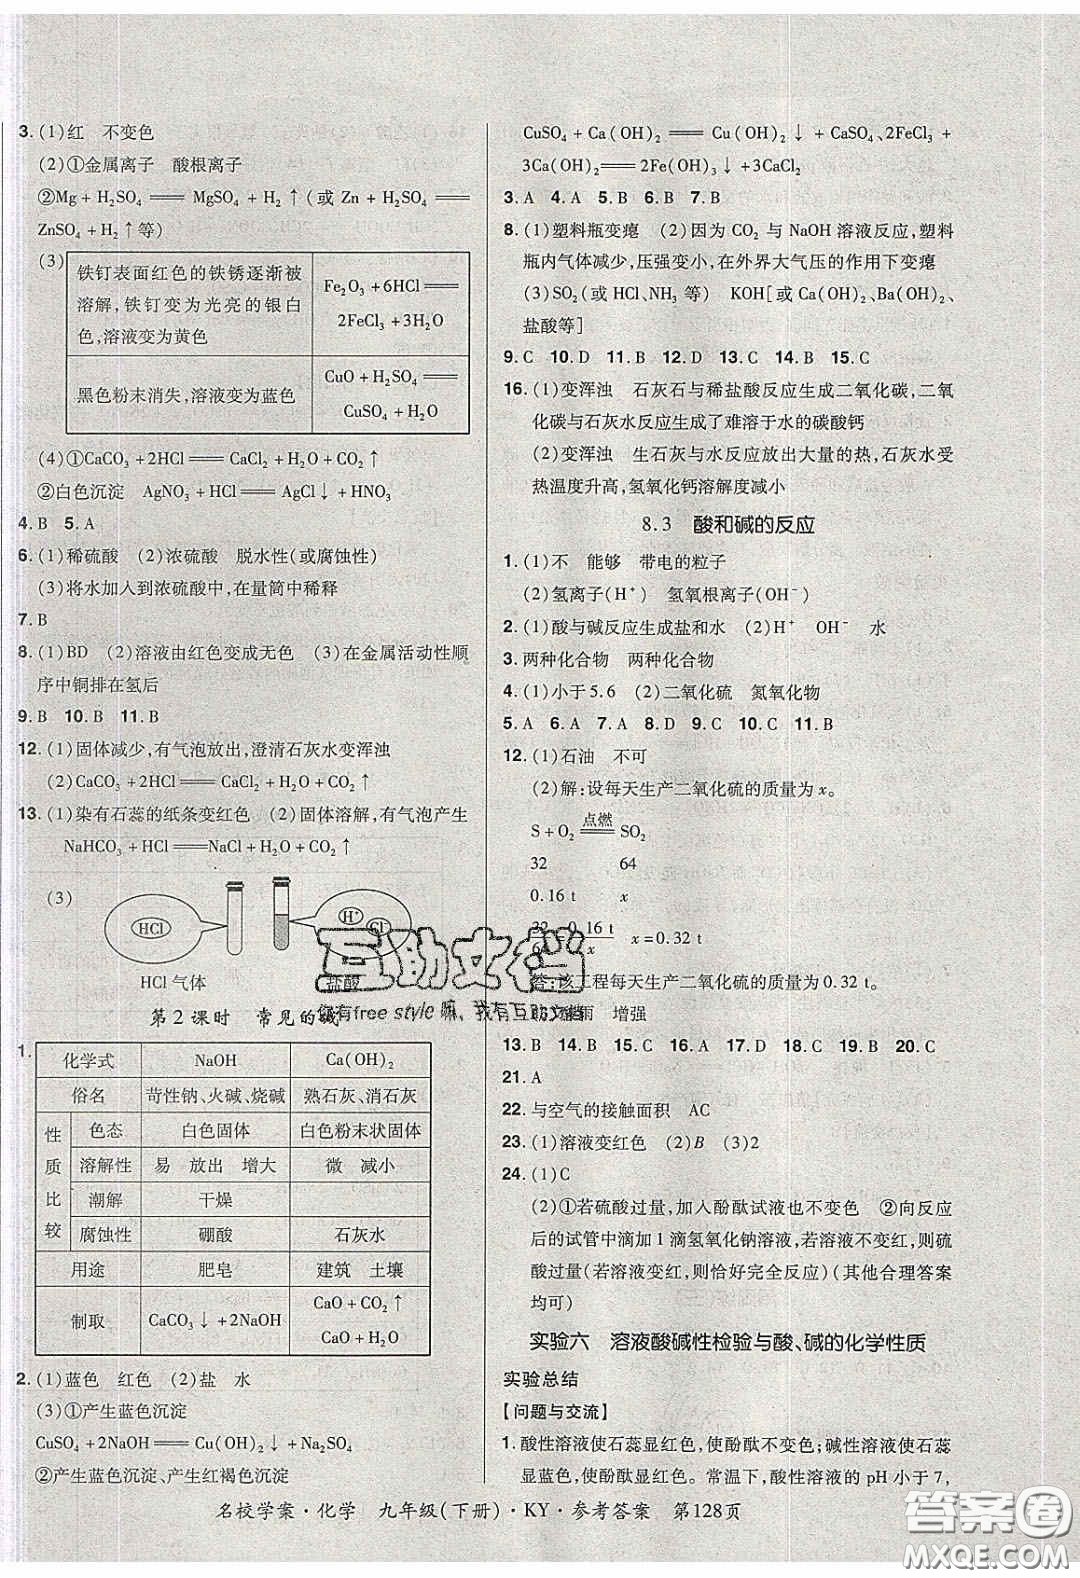 3. (1)红　不变色
(2)①金属离子　酸根离子
②Mg + H₂SO₄ ═══ MgSO₄ + H₂↑(或 Zn + H₂SO₄ ═══
ZnSO₄ + H₂↑等)
(3)
铁钉表面红色的铁锈逐渐被
溶解,铁钉变为光亮的银白
色,溶液变为黄色
Fe₂O₃ + 6HCl ═══
2FeCl₃ + 3H₂O
黑色粉末消失,溶液变为蓝色
CuO + H₂SO₄ ═══
CuSO₄ + H₂O
(4)①CaCO₃ + 2HCl ═══ CaCl₂ + H₂O + CO₂↑
②白色沉淀　AgNO₃ + HCl ═══ AgCl↓ + HNO₃
4. B　5. A
6. (1)稀硫酸　(2)浓硫酸　脱水性(或腐蚀性)
(3)将水加入到浓硫酸中,在量筒中稀释
7. B
8. (1)BD　(2)溶液由红色变成无色　(3)在金属活动性顺
序中铜排在氢后
9. B　10. B　11. B
12. (1)固体减少,有气泡放出,澄清石灰水变浑浊
(2)CaCO₃ + 2HCl ═══ CaCl₂ + H₂O + CO₂↑
13. (1)染有石蕊的纸条变红色　(2)固体溶解,有气泡产生
NaHCO₃ + HCl ═══ NaCl + H₂O + CO₂↑
(3)
HCl
H⁺
Cl⁻
HCl 气体
盐酸
第 2 课时　常见的碱
1.
化学式　NaOH　Ca(OH)₂
俗名　苛性钠、火碱、烧碱　熟石灰、消石灰
性质比较
色态　白色固体　白色粉末状固体
溶解性　易　放出　增大　微　减小
潮解　干燥
腐蚀性　硼酸　石灰水
用途　肥皂　建筑　土壤
制取　CaCO₃↓ + 2NaOH　CaO + CO₂↑
CaO + H₂O
2. (1)蓝色　红色　(2)盐　水
(3)①产生蓝色沉淀
CuSO₄ + 2NaOH ═══ Cu(OH)₂↓ + Na₂SO₄
②产生蓝色沉淀、产生红褐色沉淀
CuSO₄ + Ca(OH)₂ ═══ Cu(OH)₂↓ + CaSO₄、2FeCl₃ +
3Ca(OH)₂ ═══ 2Fe(OH)₃↓ + 3CaCl₂
3. A　4. A　5. B　6. B　7. B
8. (1)塑料瓶变瘪　(2)因为 CO₂ 与 NaOH 溶液反应,塑料
瓶内气体减少,压强变小,在外界大气压的作用下变瘪
(3)SO₂(或 HCl、NH₃ 等)　KOH[或 Ca(OH)₂、Ba(OH)₂、
盐酸等]
9. C　10. D　11. B　12. D　13. C　14. B　15. C
16. (1)变浑浊　石灰石与稀盐酸反应生成二氧化碳,二氧
化碳与石灰水反应生成了难溶于水的碳酸钙
(2)变浑浊　生石灰与水反应放出大量的热,石灰水受
热温度升高,氢氧化钙溶解度减小
8.3　酸和碱的反应
1. (1)不　能够　带电的粒子
(2)氢离子(H⁺)　氢氧根离子(OH⁻)
2. (1)酸与碱反应生成盐和水　(2)H⁺　OH⁻　水
3. 两种化合物　两种化合物
4. (1)小于 5.6　(2)二氧化硫　氮氧化物
5. A　6. A　7. A　8. D　9. D　10. C　11. B
12. (1)石油　不可
(2)解:设每天生产二氧化硫的质量为 x。
S + O₂ ═点燃═ SO₂
32　64
0.16 t　x
32/64 = 0.16 t/x　x = 0.32 t
答:该工程每天生产二氧化硫的质量为 0.32 t。
雨　增强
13. B　14. B　15. C　16. D　17. D　18. B　19. B　20. C
21. A
22. 与空气的接触面积　AC
23. (1)溶液变红色　(2)B　(3)2
24. (1)C
(2)①若硫酸过量,加入酚酞试液也不变色　②向反应
后的试管中滴加 1 滴氢氧化钠溶液,若溶液不变红,则硫
酸过量(若溶液变红,则恰好完全反应)(其他合理答案
均可)
实验六　溶液酸碱性检验与酸、碱的化学性质
实验总结
【问题与交流】
1. 酸性溶液使石蕊显红色,使酚酞不变色;碱性溶液使石蕊
显蓝色,使酚酞显红色。常温下,酸性溶液的 pH 小于 7,
名校学案·化学　九年级(下册)·KY·参考答案　第128页
互助文档
你有free style 嘛,我有互助文档
答案圈
MXQE.COM